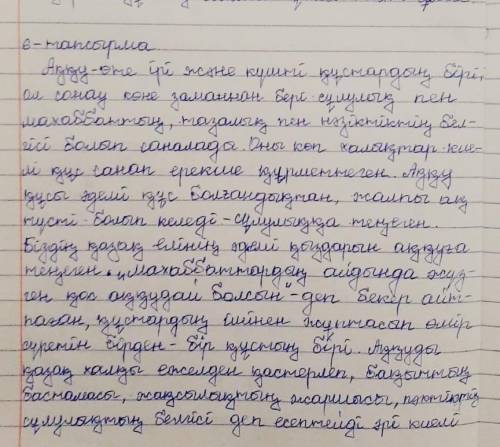 6-тапсырма
Аққу-өте ірі және күшті құстардың бірі,
ол сонау көне заманнан бері сұлулық пен
махаббаттың, тазалық пен нәзіктіктің бел-
гісі болып саналада. Оны көп халықтар кие-
лі құс санап ерекше құрметтеген. Аққу
құсы әдемі құс болғандықтан, жалпы ақ
түсті болып келеді-сұлулыққа теңеген.
Біздің қазақ елінің әдемі қыздарын аққуға
теңеген. "Махаббаттардың айдында жүз-
ген қос аққудай болсын"-деп бекер айт-
паған, құстардың ішінен жұптасып өмір
сүретін бірден-бір құстың бірі. Аққуды
қазақ халқы ежелден қастерлеп, бақыттың
бастамасы, жақсылықтың жаршысы, пәктіктің
сұлулықтың белгісі деп есептейді әрі киелі